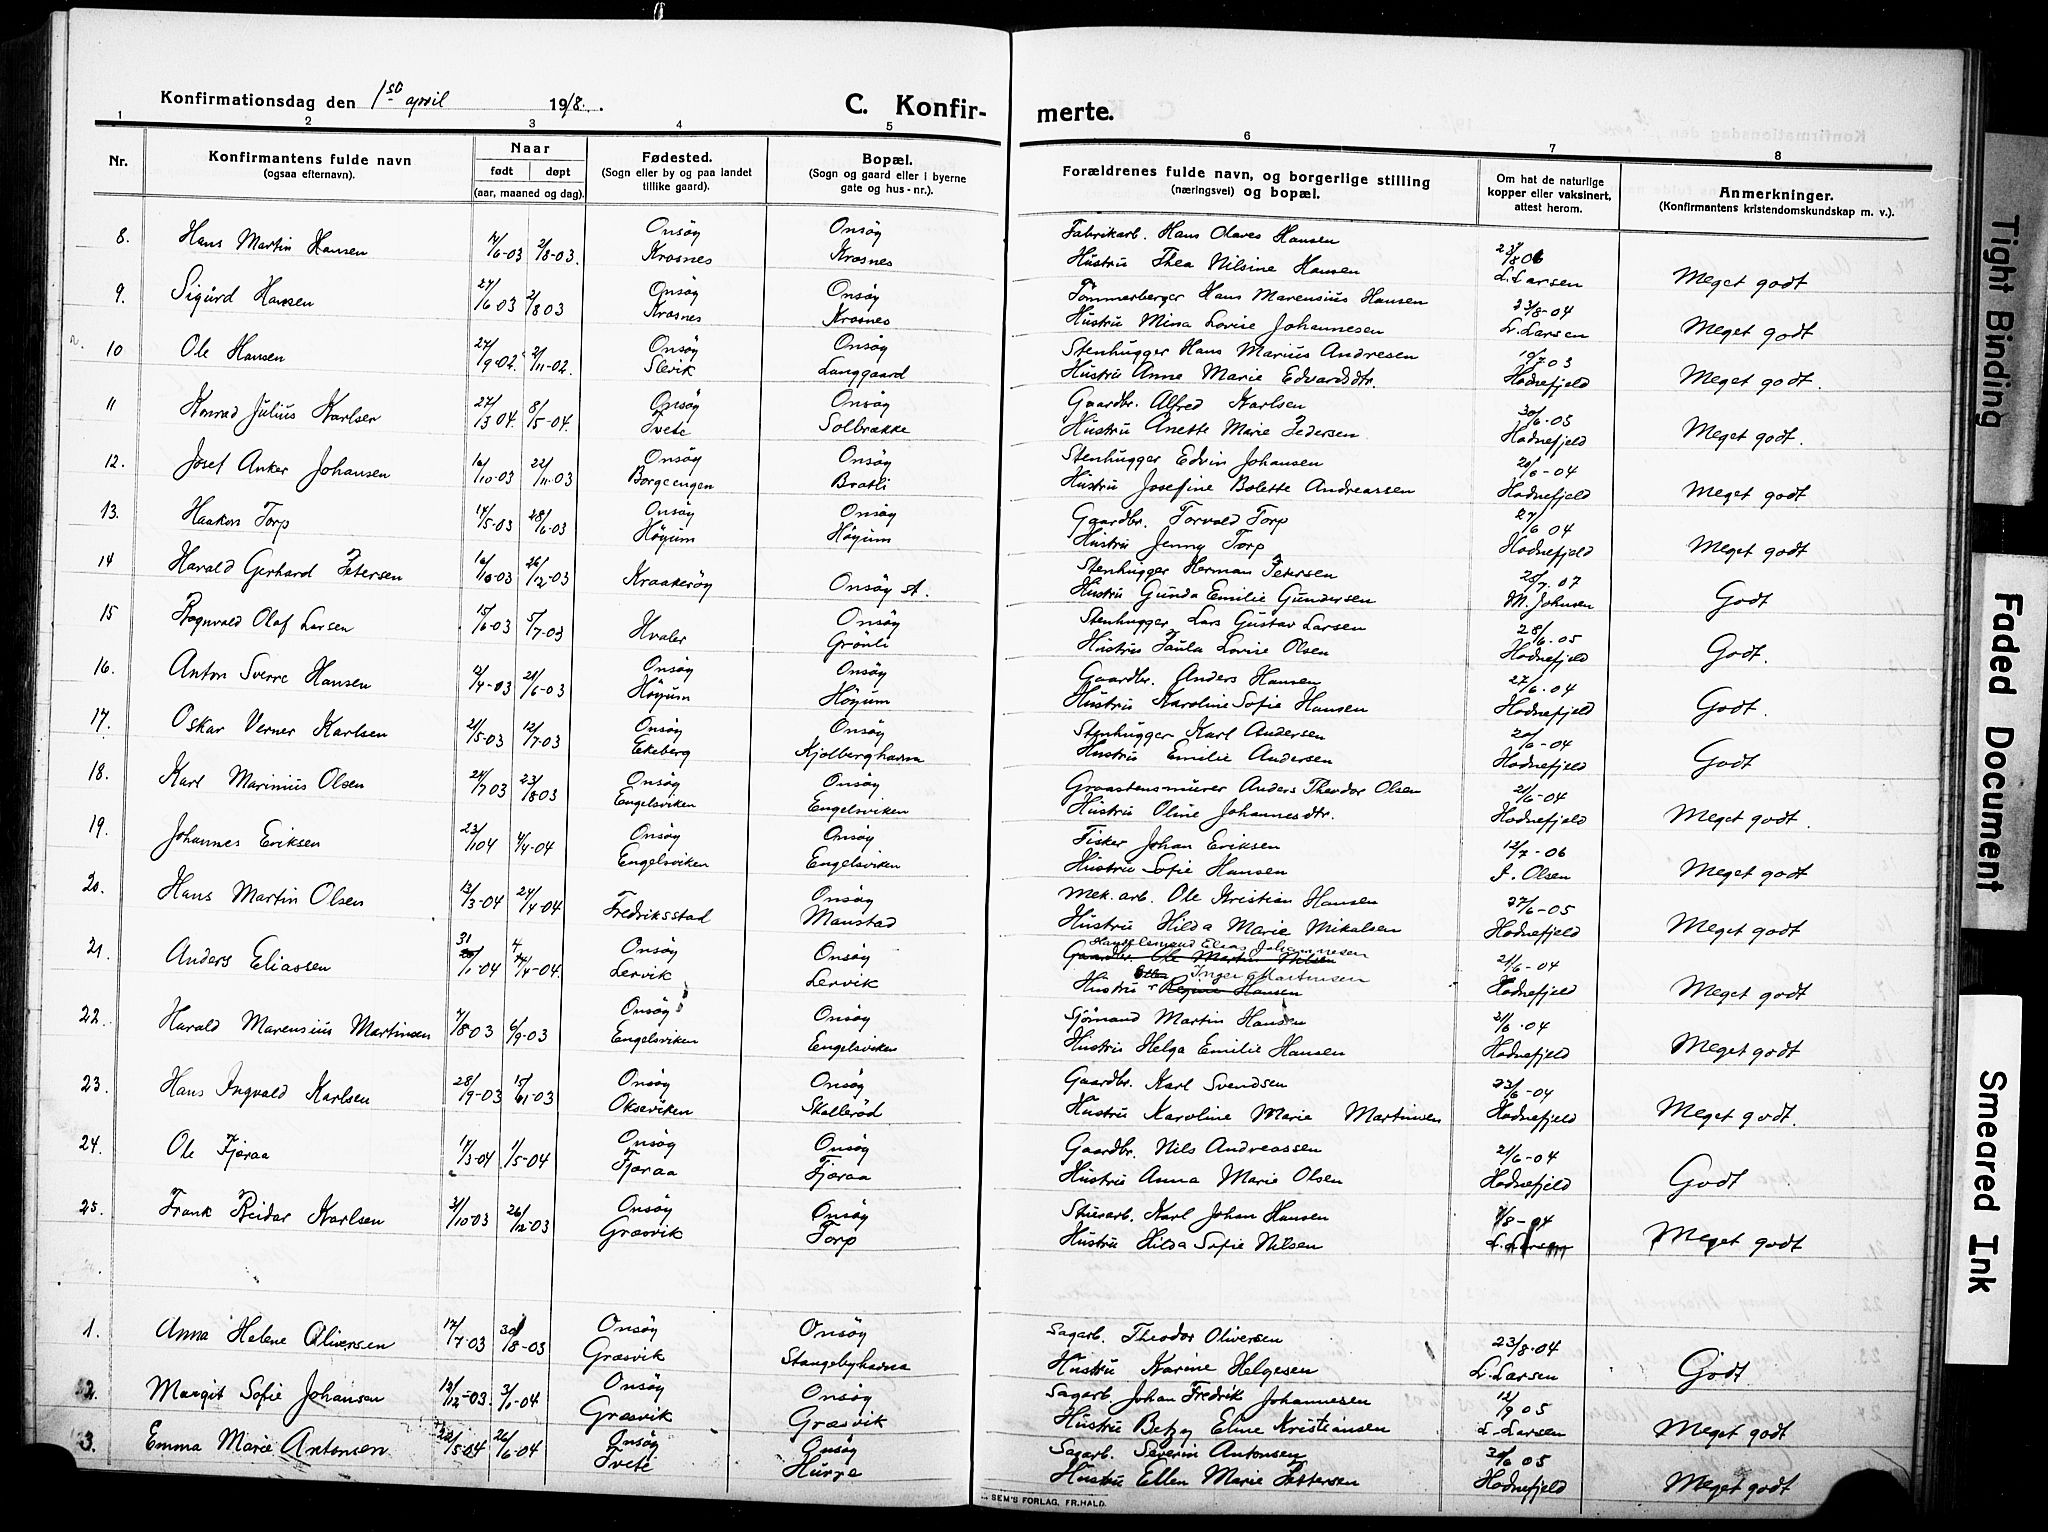 Konfirmationsdag den 1st april 1918.
C. Konfir-
merte.
1 2 3 4 5 6 7 8
Nr. Konfirmantens fulde navn (ogsaa efternavn). Naar født døpt (aar, maaned og dag). Fødested. (Sogn eller by og paa landet tillike gaard). Bopæl. (Sogn og gaard eller i byerne gate og hus-nr.). Forældrenes fulde navn, og borgerlige stilling (næringsvei) og bopæl. Om hat de naturlige kopper eller vaksinert, attest herom. Anmerkninger. (Konfirmantens kristendomskundskap m. v.).
8. Hans Martin Hansen 2/8-03. Onsøy Onsøy Fabrikarb. Hans Olaves Hansen
Krosnes Krosnes Hustru Thea Nilsine Hansen L. Larsen Meget godt
9. Sigurd Hansen 27/6 03 2/8 03 Onsøy Onsøy Tømmerberger Hans Marensius Hansen 23/8-04
Krosnes Krosnes Hustru Mina Lovise Johannesen L. Larsen Meget godt
10 Ole Hansen 27/9-02. 2/11-02. Onsøy Onsøy Stenhugger Hans Marius Andresen 10/7 03
Slevik Langgaard Hustru Anne Marie Edvardsdtr. Hodnefjeld Meget godt.
11 Konrad Julius Karlsen 27/3 04. 8/5-04. Onsøy Onsøy Gaardbr. Alfred Karlsen 30/6-05
Tvete Solbrække Hustru Anette Marie Pedersen Hodnefjeld Meget godt.
12. Josef Anker Johansen 16/10-03 22/11-03 Onsøy Onsøy Stenhugger Edvin Johansen 20/6-04
Borgeengen Bratli Hustru Josefine Bolette Andreassen Hodnefjeld Meget godt
13. Haakon Torp 17/5-03 28/6-03 Onsøy Onsøy Gaardbr. Torvald Torp 27/6 04
Høyum Høyum Hustru Jenny Torp Hodnefjeld Meget godt
14 Harald Gerhard Petersen 26/12-03 Kraakerøy Onsøy st. Stenhugger Herman Petersen
Hustru Gunda Emilie Gundersen M. Johnsen Godt
15 Ragnvald Olaf Larsen 15/6-03 5/7-03 Hvaler Onsøy Stenhugger Lars Gustav Larsen 28/6-05
Grønli Hustru Paula Lovise Olsen Hodnefjeld Godt.
16. Anton Sverre Hansen 21/6-03 Onsøy Onsøy Gaardbr. Anders Hansen 27/6-04
Høyum Høyum Hustru Karoline Sofie Hansen Hodnefjeld Godt.
17. Oskar Verner Karlsen 21/5-03 12/7-03 Onsøy Onsøy Stenhugger Karl Andersen 20/6-04
Ekeberg Kjølberghavna Hustru Emilie Andersen Hodnefjeld Godt
18. Karl Marinius Olsen 24/7 03 23/8 03 Onsøy Onsøy Graastensmurer Anders Theodor Olsen 21/6-04
Engelsviken Engelsviken Hustru Oline Johannesdtr. Hodnefjeld Meget godt.
19. Johannes Eriksen 23/1 04 4/4-04 Onsøy Onsøy Fisker Johan Eriksen 12/7-06
Engelsviken Engelsviken Hustru Sofie Hansen Olsen Meget godt
20. Hans Martin Olsen 13/3-04 24/4-04 Fredriksstad Onsøy Mek. arb. Ole Kristian Hansen 27/6-05
Manstad Hustru Hilda Marie Mikalsen Hodnefjeld Meget godt
21. Anders Eliassen 31/1-04 4/4-04. Onsøy Onsøy Handelsmand Elias Johannesen
Gaardbr. Ole Martin Nilsen 21/6-04
Lervik Lervik Ellen Inger Martinsen
Hustru Regine Hansen Hodnefjeld Meget godt
22. Harald Marensius Martinsen 7/8-03 6/9-03 Onsøy Onsøy Sjømand Martin Hansen 21/6-04
Engelsviken Engelsviken Hustru Helga Emilie Hansen Hodnefjeld Meget godt
23. Hans Ingvald Karlsen 28/9-03 Onsøy Onsøy Gaardbr. Karl Svendsen 23/6-04
Okseviken Skallerød Hustru Karoline Marie Martinsen Hodnefjeld Meget godt.
24. Ole Fjæraa 17/3-04 1/5-04 Onsøy Onsøy Gaardbr. Nils Andreassen 21/6-04
Fjæraa Fjæraa Hustru Anna Marie Olsen Hodnefjeld Godt
25. Frank Reidar Karlsen 31/10-03 26/12-03 Onsøy Onsøy Stuerarb. Karl Johan Hansen
Græsvik Torp Hustru Hilda Sofie Nilsen L. Larsen Meget godt
1. Anna Helene Oliversen 17/7-03 30/8-03 Onsøy Onsøy Sagarb. Theodor Oliversen 23/8-04
Græsvik Stangebyhavna Hustru Karine Helgesen L. Larsen Godt.
2. Margit Sofie Johansen 12/12-03 3/1-04 Onsøy Onsøy Sagarb Johan Fredrik Johannesen 12/9 05
Græsvik Græsvik Hustru Betzy Eline Kristiansen L. Larsen Meget godt
3. Emma Marie Antonsen 22/5-04 26/6-04 Onsøy Onsøy Sagarb. Severin Antonsen 30/6 05
Tvete Hurre Hustru Ellen Marie Pettersen Hodnefjeld Meget godt
SEM'S FORLAG, FR.HALD.
Tight Binding
Faded Document
Smeared Ink